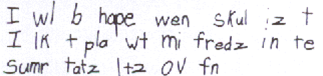 I wl b hape wen skul iz t
I lk t pla wt mi fredz in te
sumr tatz ltz ov fn